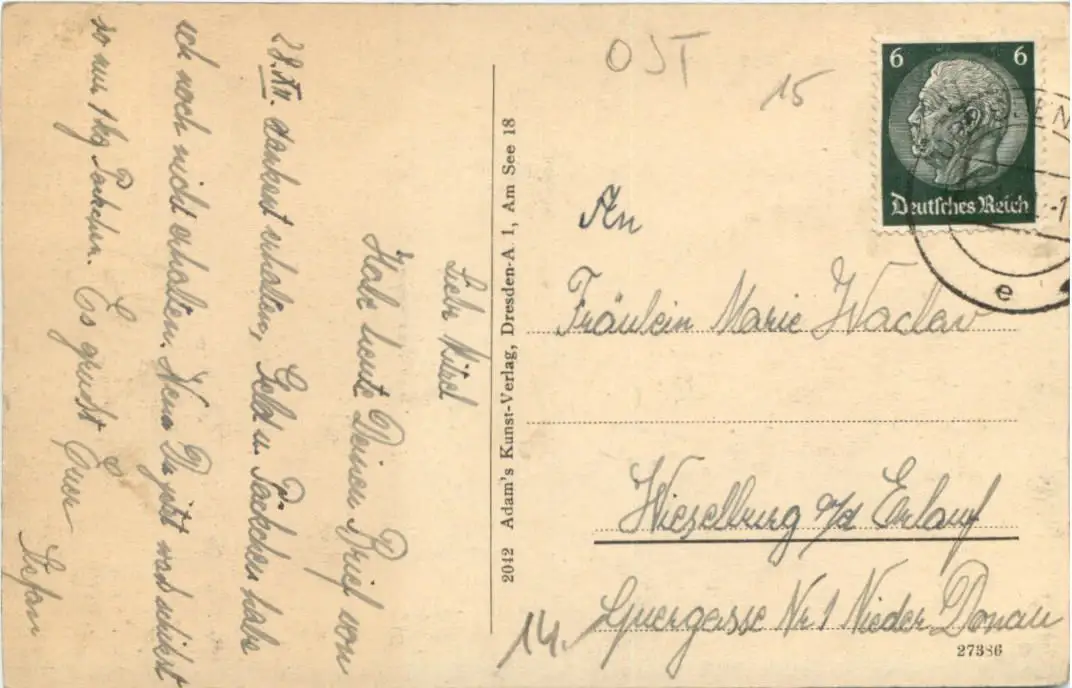 Liebe Misel
Habe heute Deinen Brief von
28. XII. dankent erhalten, Geld u. Päckchen habe
ich noch nicht erhalten. Wenn Du jetzt was schickst
so nur 1 kg Päckchen. Es grüsst Euer
Stefan
2042 Adam's Kunst-Verlag, Dresden-A. 1, Am See 18
OST
15
6 6
Deutsches Reich
EN
-1
e
An
Fräulein Marie Waclav
Wieselburg a/d Erlauf
14.
Quergasse Nr 1 Nieder Donau
27386